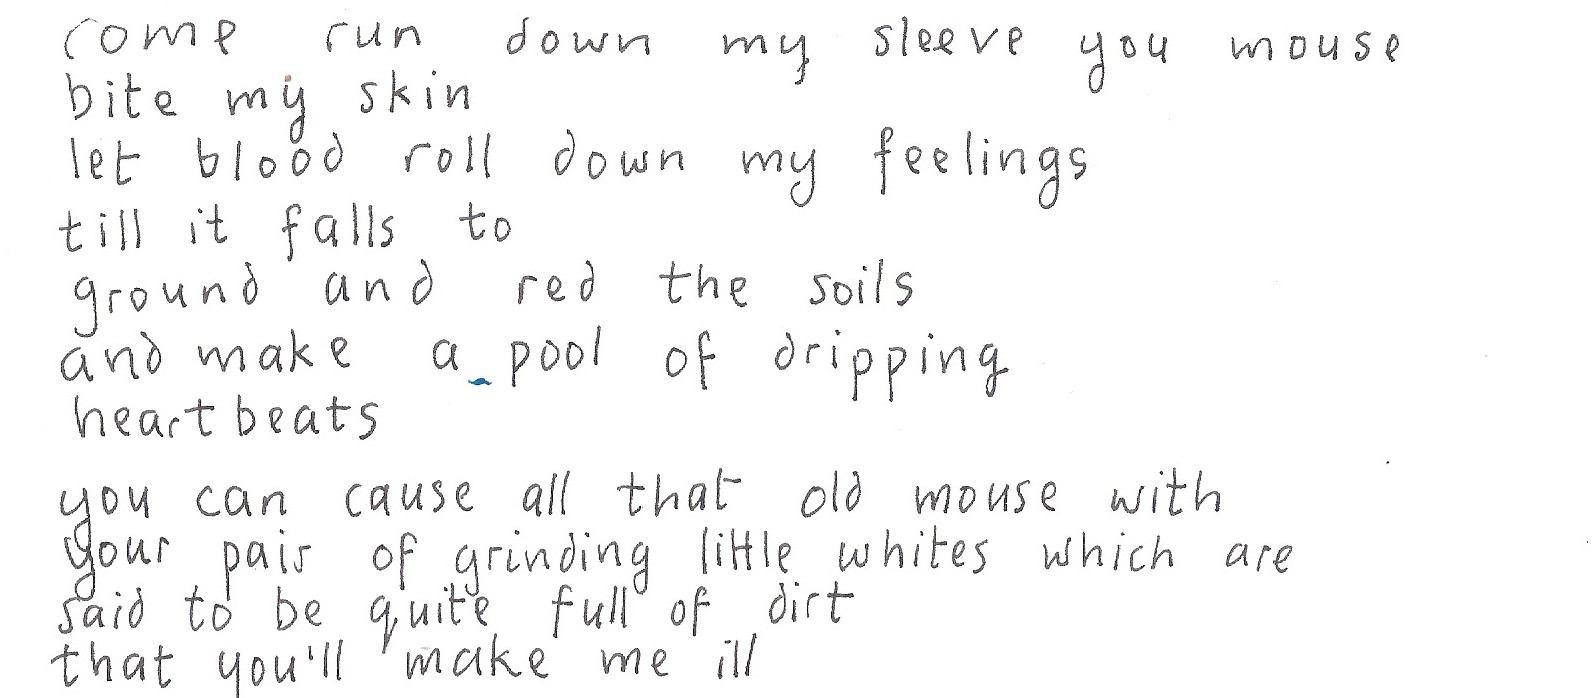 come run down my sleeve you mouse
bite my skin
let blood roll down my feelings
till it falls to
ground and red the soils
and make a pool of dripping
heart beats
you can cause all that old mouse with
your pair of grinding little whites which are
said to be quite full of dirt
that you'll make me ill